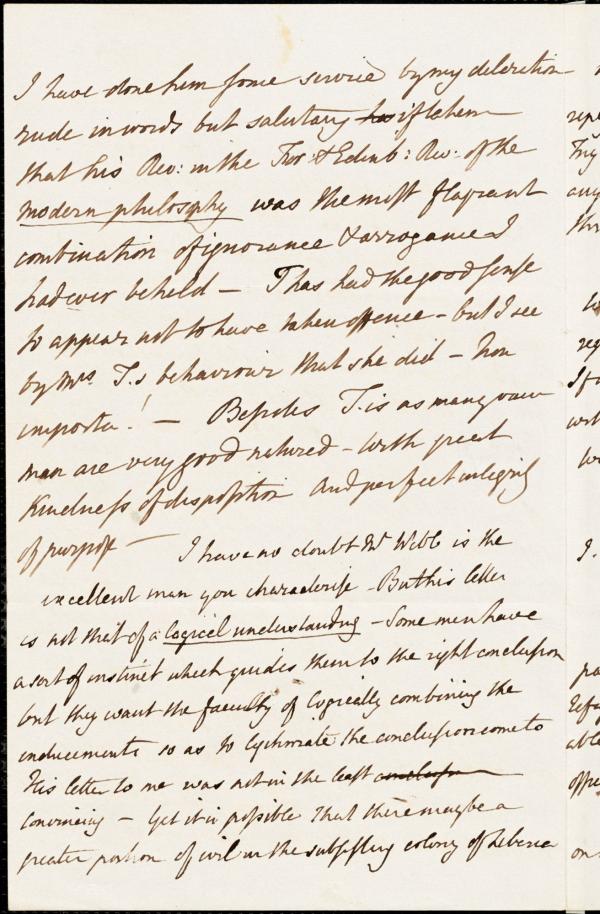 I have done him some service by my declaration
rude in words but salutary has if to him
that his Rev: in the For. & Edinb: Rev: of the
modern philosophy was the most flagrant
combination of ignorance & arrogance I
had ever beheld — T has had the good sense
to appear not to have taken offence - but I see
by Mrs. T.s behaviour that she did - Non
importa! — Besides T. is as many vain
men are very good natured - with great
kindness of disposition and perfect integrity
of purpose —
I have no doubt Mr Webb is the
excellent man you characterise - But his letter
is not that of a logical understanding - Some men have
a sort of instinct which guides them to the right conclusion
but they want the faculty of logically combining the
inducements so as to legitimate the conclusion come to
His letter to me was not in the least conclusive
convincing - Yet it is possible that there may be a
greater portion of evil in the subsisting colony of Liberia